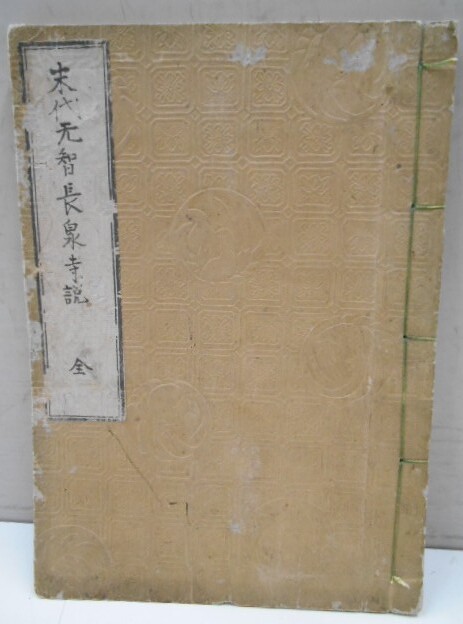 末代无智長泉寺説
全